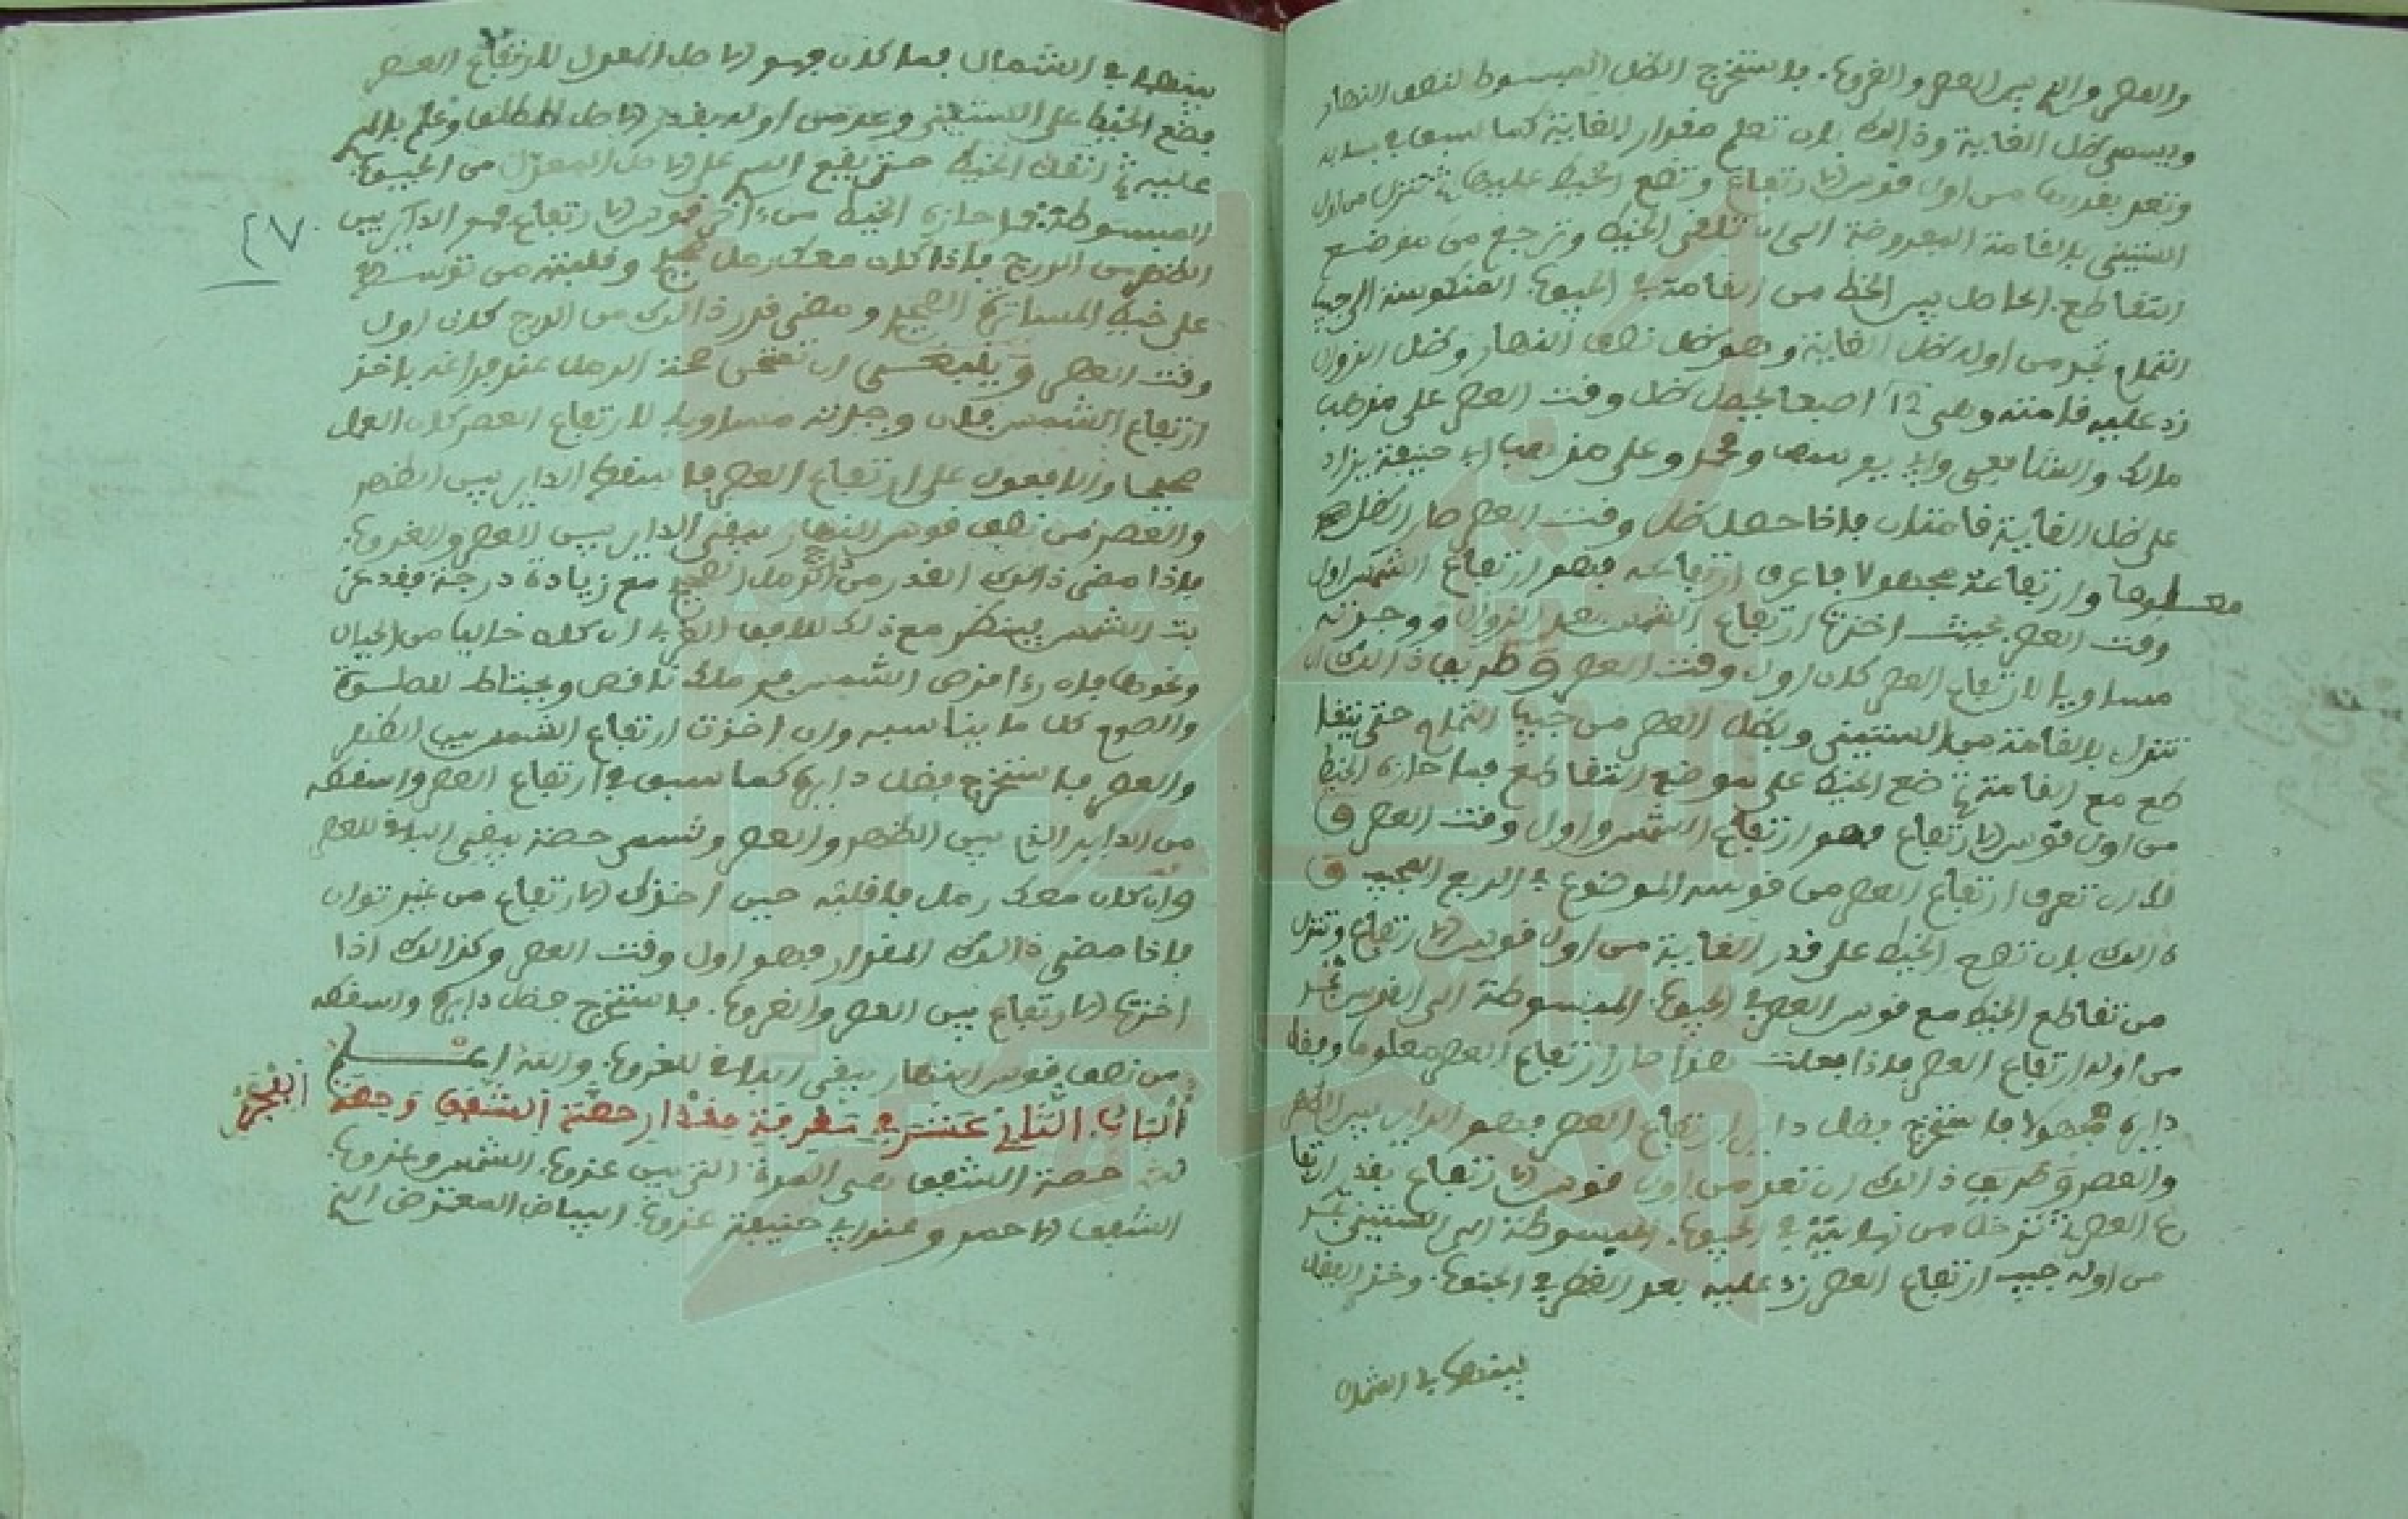 والعصر والذي بين العصر والغروب. فاستخرج الظل المبسوط لنصف النهار
ويسمى ظل الغاية وذالك بان تعلم مقدار الغاية كما سبق في بابه
وتعد بقدرها من اول قوس الارتفاع وتضع الخيط عليها ثم تنزل من اول
الستيني بالقامة المعروضة الى ان تلقى الخيط وترجع من موضع
التقاطع الحاصل بين الخيط من القامة في الجيوب المنكوسة الى جيب
التمام تجد من اوله ظل الغاية وهو ظل نصف النهار وظل الزوال
زد عليه قامته وهي 12 اصبعا يحصل ظل وقت العصر على مذهب
مالك والشافعي وابي يوسف ومحمد وعلى مذهب ابي حنيفة يزاد
على ظل الغاية قامتان فاذا حصل ظل وقت العصر صار الظل
معلوما وارتفاعه مجهولا فاعرف ارتفاعه فهو ارتفاع الشمس اول
وقت العصر بحيث اخذتها ارتفاع الشمس بعد الزوال ووجدته
مساويا لارتفاع العصر كان اول وقت العصر وطريق ذالك ان
تنزل بالقامة من الستيني وبظل العصر من جيب التمام حتى يتقا
طع مع القامة ثم ضع الخيط على موضع التقاطع فما حازه الخيط
من اول قوس الارتفاع فهو ارتفاع الشمس واول وقت العصر
لك ان تعرف ارتفاع العصر من قوسه الموضوع في الربع المجيب و
ذالك بان تضع الخيط على قدر الغاية من اول قوس الارتفاع وتنزل
من تقاطع الخيط مع قوس العصر في الجيوب المبسوطة الى القوس تجد
من اوله ارتفاع العصر فاذا فعلت هذا صار ارتفاع العصر معلوما وفضل
دايره مجهولا فاستخرج فضل داير ارتفاع العصر فهو الداير بين الظهر
والعصر وطريق ذالك ان تعد من اول قوس الارتفاع بقدر ارتفا
ع العصر ثم تدخل من نهايته في الجيوب المبسوطة الى الستيني تجد
من اوله جيب ارتفاع العصر زد عليه بعد القطر في الجنوب وخذ الفضل
بينهما في الشمال
بينهما في الشمال فما كان فهو الاصل المعدل لارتفاع العصر
فضع الخيط على الستيني وعد من اوله بقدر الاصل المطلق وعلم بالمري
عليه ثم انقل الخيط حتى يقع المري على الاصل المعدل من الجيوب
المبسوطة فما حازه الخيط من اخر قوس الارتفاع فهو الداير بين
٤٧
الظهرين من الدرج فاذا كان معك رمل صحيح وقلبته من توسط
على خيط المساترة الصحيح ومضى قدر ذالك من الدرج كان اول
وقت العصر وينبغي ان تمتحن صحة الرمل عند فراغه باخذ
ارتفاع الشمس فان وجدته مساويا لارتفاع العصر كان العمل
صحيحا والا فعول على ارتفاع العصر فاسقط الداير بين الظهر
والعصر من نصف قوس النهار يبقى الداير بين العصر والغروب.
فاذا مضى ذالك القدر من الرمل الصحيح مع زيادة درجة فقد غر
بت الشمس وينظر مع ذلك للافق الغربي ان كان خاليا من الجبال
ونحوها فان رءا قرص الشمس فرمله ناقص ويحتاط للصلوة
والصوم كل ما يناسبه وان اخذت ارتفاع الشمس بين الظهر
والعصر فاستخرج فضل دايره كما سبق في ارتفاع العصر واسقطه
من الداير الذي بين الظهر والعصر وتسمى حصة يبقى الباقي للعصر
وان كان معك رمل فاقلبه حين اخذك الارتفاع من غير توان
فاذا مضى ذالك المقدار فهو اول وقت العصر وكذالك اذا
اخذتها الارتفاع بين العصر والغروب. فاستخرج فضل دايره واسقطه
من نصف قوس النهار يبقى الباقي للغروب. والله اعلم
الباب الثاني عشر في معرفة مقدار حصة الشفق وحصة الفجر
حصة الشفق هي المدة التي بين غروب الشمس وغروب
الشفق الاحمر وعند ابي حنيفة غروب البياض المعترض الذي